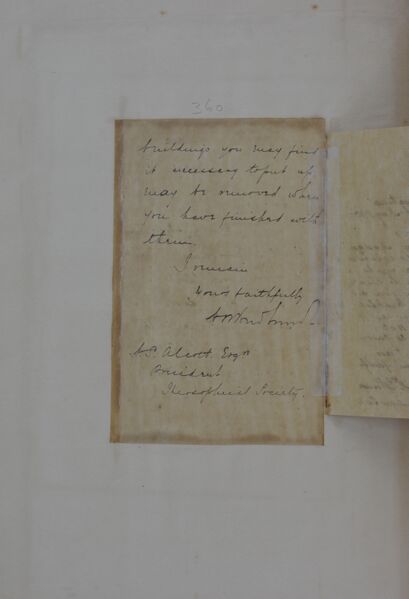 360
buildings you may find
it necessary to put up,
may be removed when
you have finished with
them.
I remain
Yours faithfully
A.P. Alcott Esqre
President
Theosophical Society.